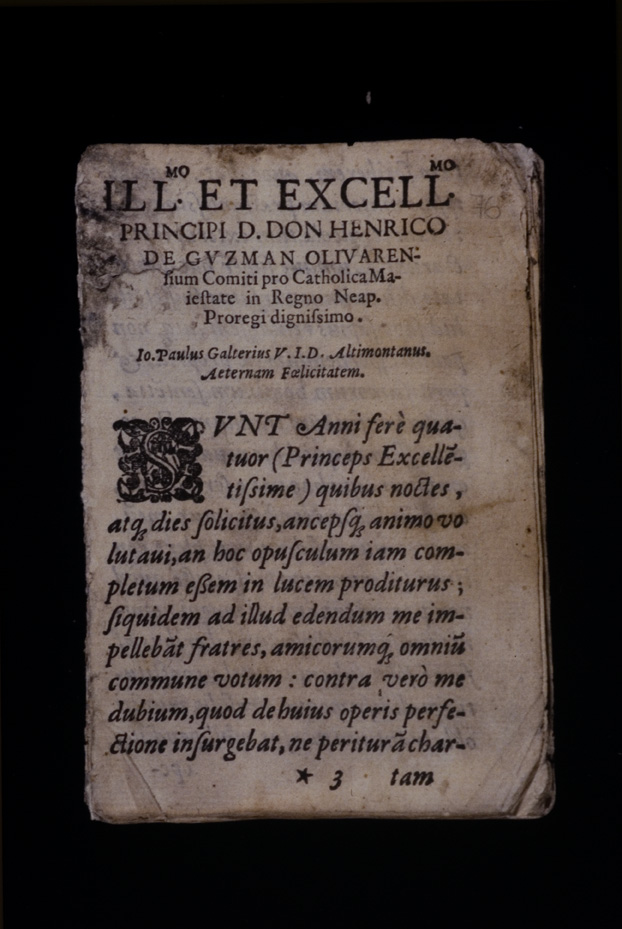 ILL.MO ET EXCELL.MO
PRINCIPI D. DON HENRICO
DE GVZMAN OLIVAREN-
ſium Comiti pro Catholica Ma-
ieſtate in Regno Neap.
Proregi digniſsimo.
Io. Paulus Galterius V. I. D. Altimontanus.
Aeternam Fœlicitatem.
SVNT Anni ferè qua-
tuor (Princeps Excellē-
tiſsime) quibus noctes,
atq; dies ſolicitus, ancepſq; animo vo
lutaui, an hoc opuſculum iam com-
pletum eßem in lucem proditurus;
ſiquidem ad illud edendum me im-
pellebāt fratres, amicorumq; omniū
commune votum: contra verò me
dubium, quod de huius operis perfe-
ctione inſurgebat, ne periturā char-
★ 3 tam
76